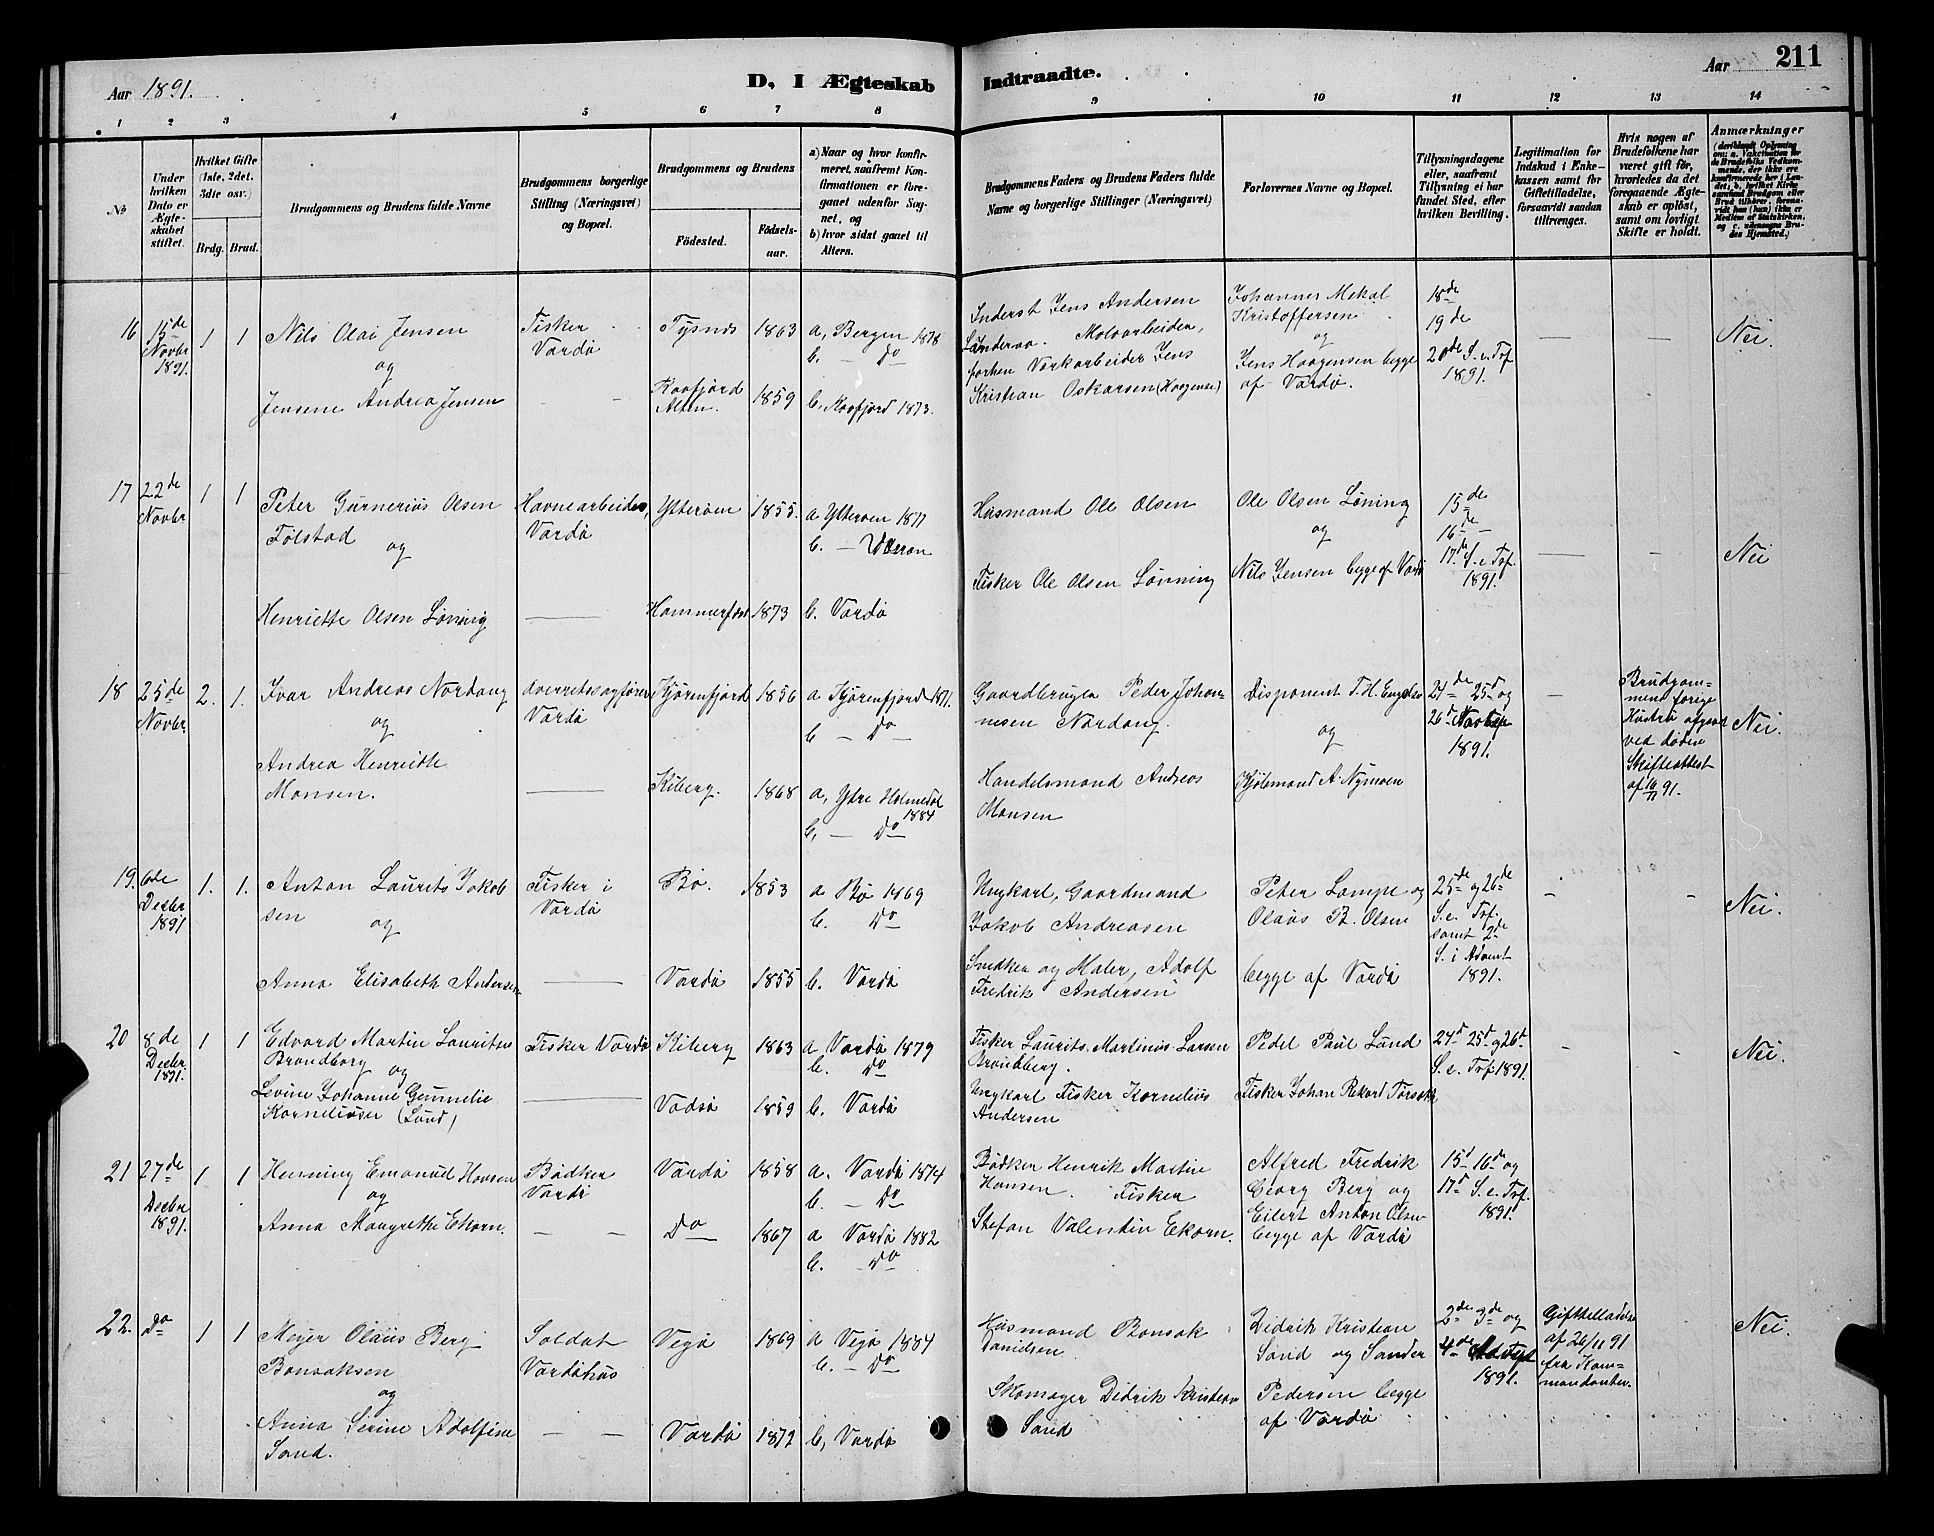 Aar 1891.
D, I Ægteskab Indtraadte.
Aar 211
1 2 3 4 5 6 7 8 9 10 11 12 13 14
No
Under hvilken Dato er Ægteskabet stiftet.
Hvilket Gifte (1ste, 2det, 3dte osv.)
Brdg. Brud.
Brudgommens og Brudens fulde Navne
Brudgommens borgerlige Stilling (Næringsvei) og Bopæl.
Brudgommens og Brudens
Fødested.
Fødselsaar.
a) Naar og hvor konfirmeret, saafremt Konfirmationen er foregaaet udenfor Sognet, og
b) hvor sidst gaaet til Alters.
Brudgommens Faders og Brudens Faders fulde Navne og borgerlige Stillinger (Næringsvei)
Forlovernes Navne og Bopæl.
Tillysningsdagene eller, saafremt Tillysning ei har fundet Sted, efter hvilken Bevilling.
Legitimation for Indskud i Enkekassen samt for Giftetilladelse, forsaavidt saadan tiltrænges.
Hvis nogen af Brudefolkene har været gift før, hvorledes da det foregaaende Ægteskab er opløst, samt om lovligt Skifte er holdt.
Anmærkninger
16 15de Novbr 1891. 1 1
Nils Olai Jensen
og
Jensene Andrea Jensen
Fisker
Vardø
Tysnes 1863
a, Bergen 1878
b. — Do
Kaafjord Alten. 1859
b. Kaafjord 1873.
Inderst Jens Andersen
Moloarbeider,
forhen Værkarbeider Jens
Kristian Oskarsen (Haagensen)
Johannes Mekal
Kristoffersen
og
Jens Haagensen begge
af Vardø.
18de
19de
20de S. e. Trf
1891.
Nei.
17 22de Novbr 1 1
Peter Gunerius Olsen
Følstad og
Henriette Olsen Løning
Havnearbeider,
Vardø
Ytterøen 1855.
a Ytterøen 1871
Hammerfest 1873
b. Vardø
Husmand Ole Olsen
Fisker Ole Olsen Lønning
Ole Olsen Løning
og
Nils Jensen begge af Vardø
15de
16de —
17de S. e. Trf.
1891.
Nei
18 25de Novbr. 2. 1.
Ivar Andreas Nordang
og
Andrea Henriette
Monsen.
Overretssagfører
Vardø
Kjørenfjord 1856
a Kjørenfjord 1871.
b — Do —
Kiberg. 1868
a, Ytre Holmedal 1884
b, — Do
Gaardbruger Peder Johannesen Nordang.
Handelsmand Andreas
Monsen
Disponent T. H. Engelsen
og
Kjøbmand A. Nymoen
24de 25d og
26d Novbr
1891.
Brudgommens forige
Hustru afgaat
ved døden
Skifteattest
af 16/11 91.
Nei.
19. 6de Decbr 1891 1. 1.
Anton Laurits Jakobsen
og
Anna Elisabeth Andersen
Fisker i
Vardø
Bø. 1853
a Bø 1869
b. Do
Vardø 1855
b. Vardø
Ungkarl, Gaardmand
Jakob Andreasen
Snedker og Maler, Adolf
Fredrik Andersen
Peter Lampe og
Olaus B. Olsen
begge af Vardø
25de og 26de
S. e. Trf.
samt 2de
S. i Advent
1891.
Nei.
20 8de Decbr 1891. 1 1
Edvard Martin Lauritsen
Brandborg og
Levine Johanne Gunnelie
Korneliusen (Lund)
Fisker Vardø
Kiberg 1863
a Vardø 1879
b. Do
Vadsø 1859
b. Vardø
Fisker Laurits Martinus Larsen
Brandberg.
Ungkarl Fisker Kornelius
Andersen
Pedel Paul Lund
Fisker Johan Rekord
24d 25d og 26d
S. e. Trf. 1891.
Nei.
21 27de Decbr 1891. 1 1
Henning Emanuel Hansen
og
Anna Margrethe Ekorn.
Bødker
Vardø
Vardø 1858
a. Vardø 1874
b. — Do
Do 1867
a Vardø 1882
b. Do
Bødker Henrik Martin
Hansen. Fisker
Stefan Valentin Ekorn.
Alfred Fredrik
Georg Berg og
Eilert Anton Olsen
begge af Vardø
15d 16d og
17d S. e. Trf.
1891.
22. Do 1 1
Meyer Olaus Berg
Bonsaksen
og
Anna Serine Adolfine
Sand.
Soldat
Vardøhus
Vegø 1869
a Vegø 1884
b. — Do
Vardø 1872
b, Vardø
Husmand Bonsak
Danielsen
Skomager Didrik Kristian
Sand
Didrik Kristian
Sand og Sander
Pedersen begge
af Vardø
2de 3de og
4de Advent
1891.
Giftetilladelse
af 26/11 91
fra Kommandanten.
Nei.